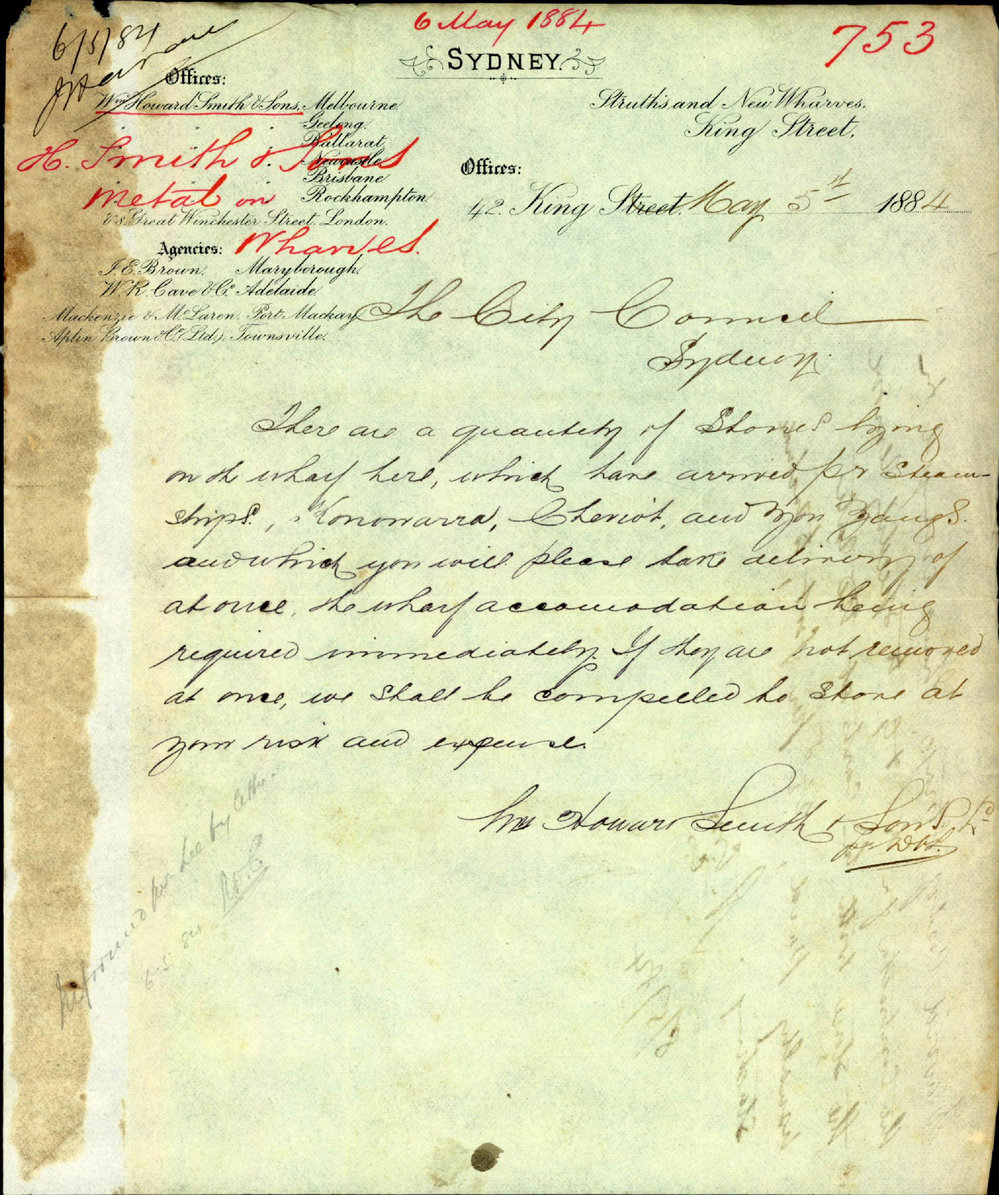 6 May 1884
753
6/5/84
SYDNEY.
Offices:
Wm. Howard Smith & Sons, Melbourne
Geelong.
Ballarat.
Newcastle
Brisbane
Rockhampton
H. Smith & Sons
Metal on
Wharves.
& 8, Great Winchester Street London.
Agencies:
J. E. Brown, Maryborough.
W. R. Cave & Co. Adelaide.
Mackenzie & McLaren, Port Mackay
Aplin Brown & Co. (Ltd.), Townsville.
Struth's and New Wharves.
King Street.
Offices:
42, King Street. May 5th 1884
The City Council
Sydney.
There are a quantity of Stones lying
on the wharf here, which have arrived per steam-
ships., Konowarra, Cheviot, and You Yangs.
and which you will please take delivery of
at once, the wharf accomodation being
required immediately. If they are not removed
at once, we shall be compelled to store at
your risk and expense.
Wm Howard Smith & Sons Ld
Informed
by letter
6.5.84